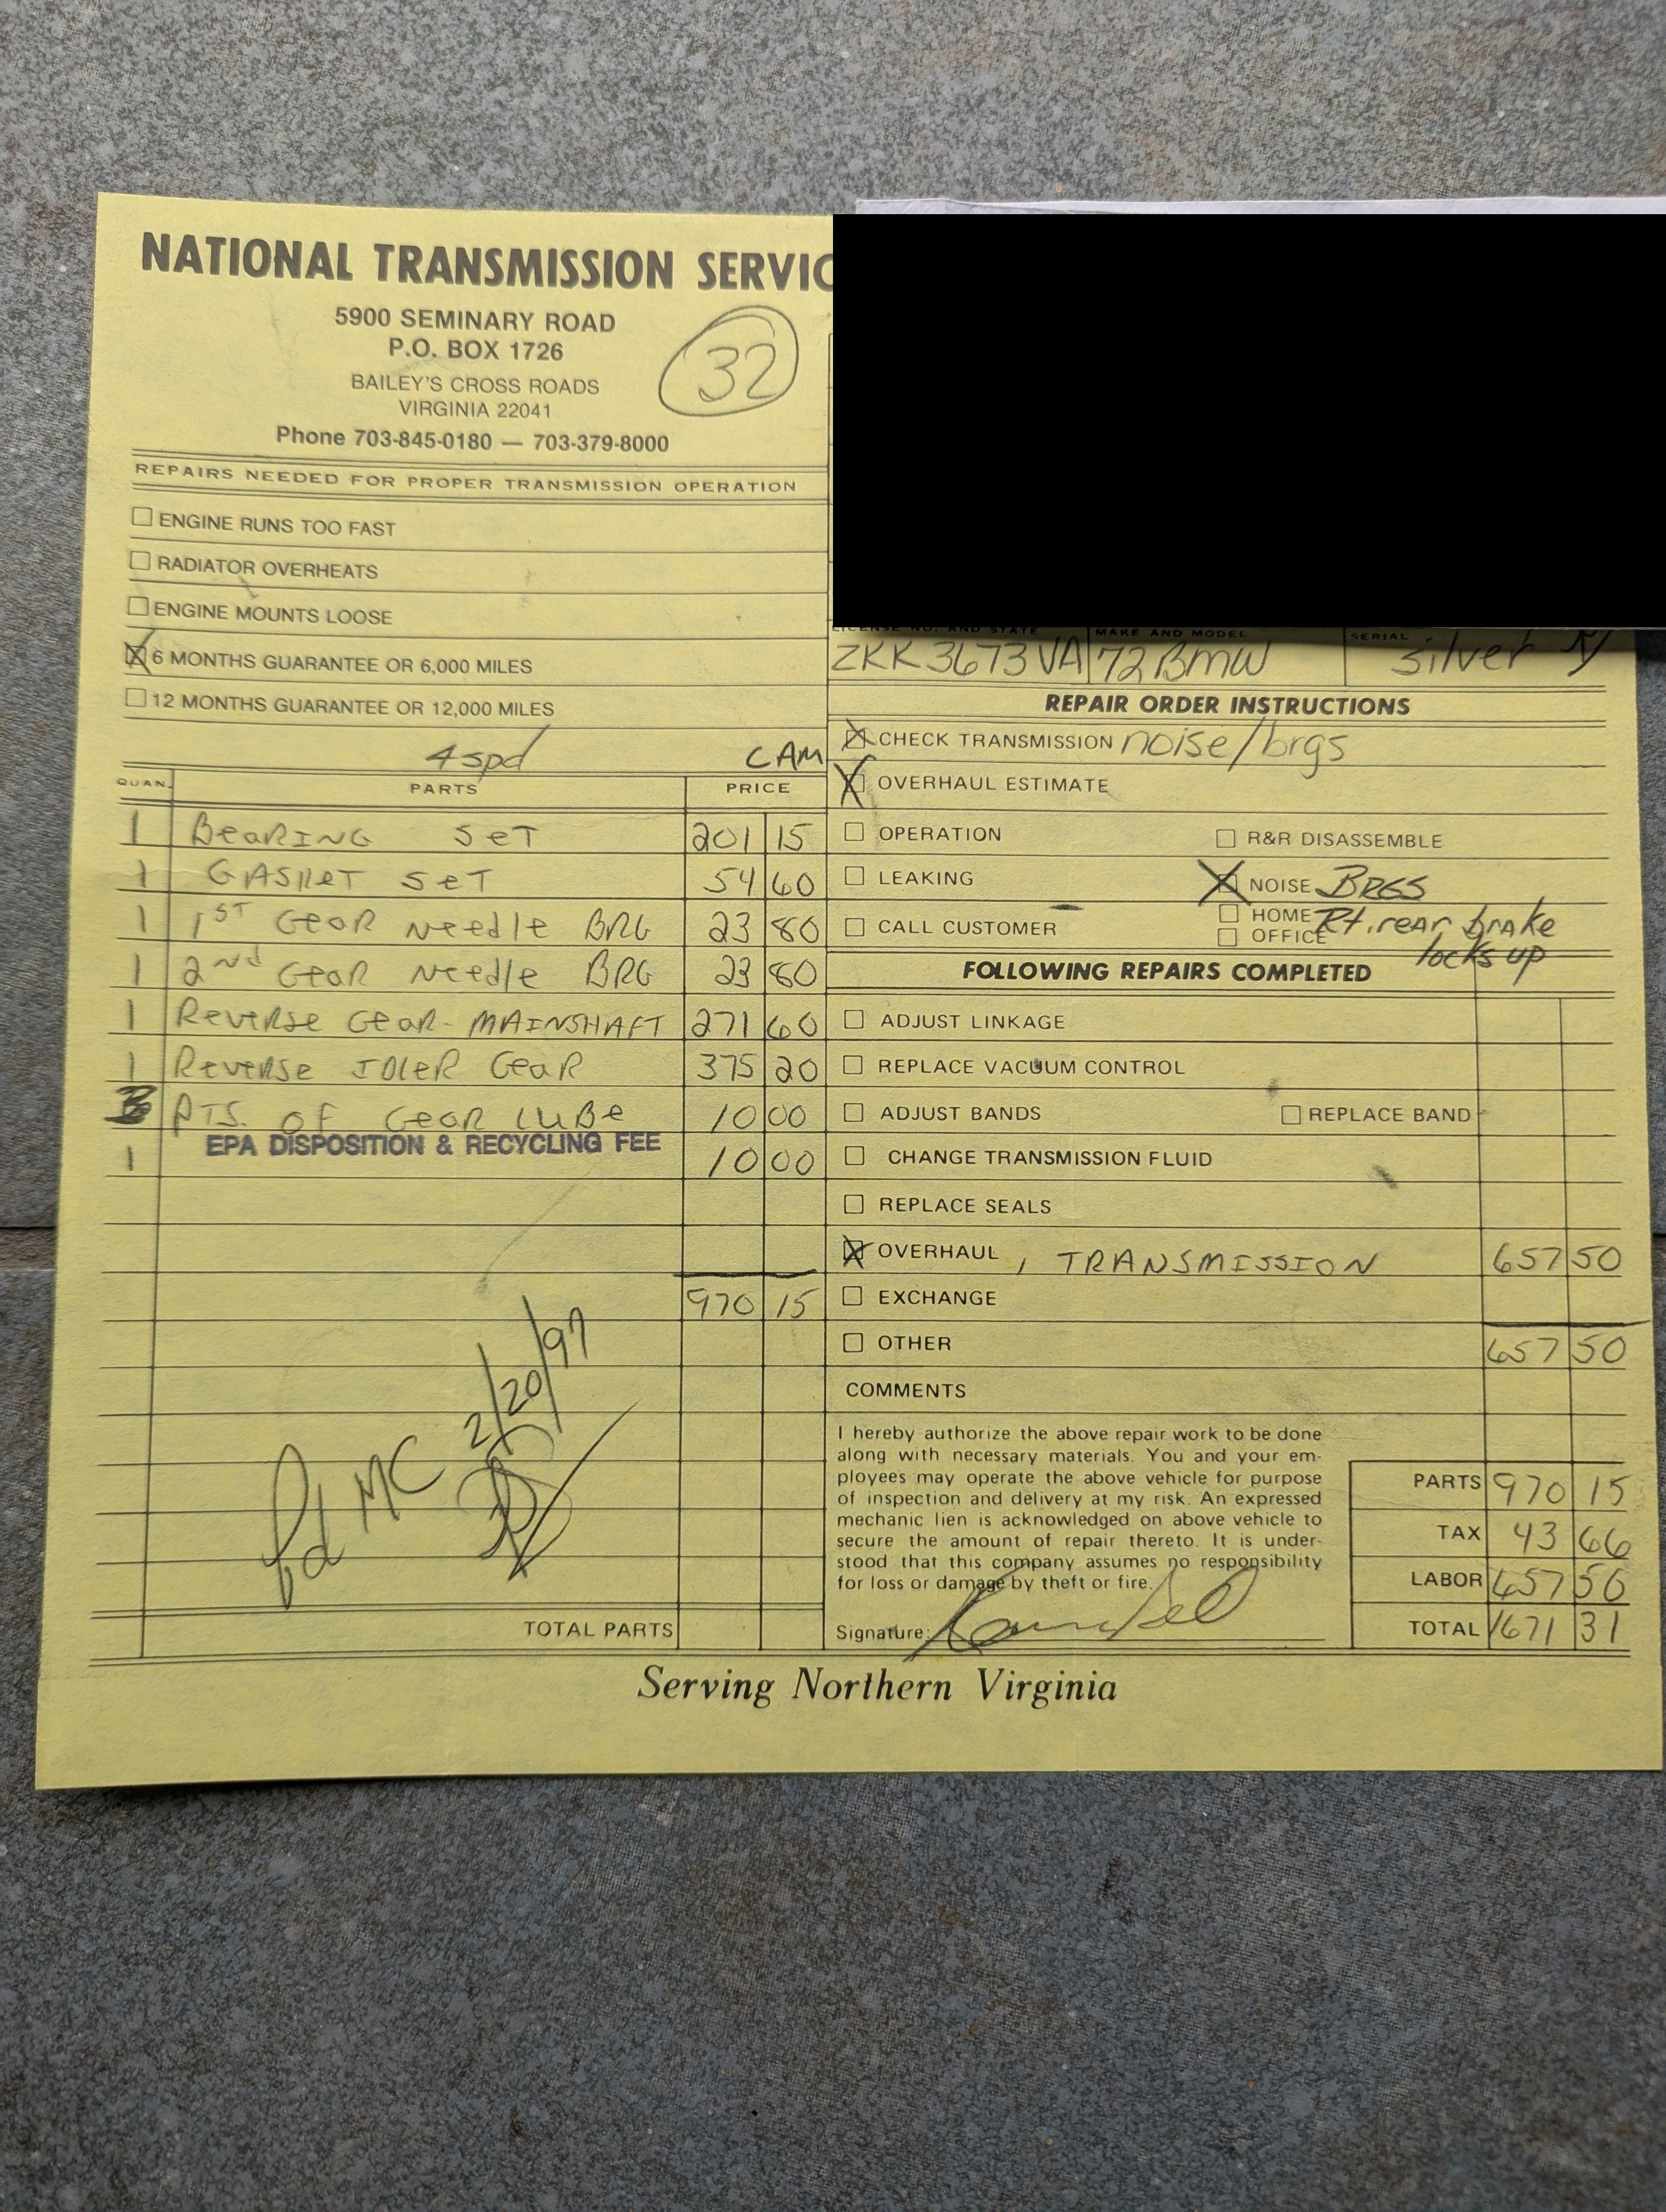 NATIONAL TRANSMISSION SERVIC
5900 SEMINARY ROAD
P.O. BOX 1726
BAILEY'S CROSS ROADS
VIRGINIA 22041
Phone 703-845-0180 — 703-379-8000
32
REPAIRS NEEDED FOR PROPER TRANSMISSION OPERATION
ENGINE RUNS TOO FAST
RADIATOR OVERHEATS
ENGINE MOUNTS LOOSE
6 MONTHS GUARANTEE OR 6,000 MILES
12 MONTHS GUARANTEE OR 12,000 MILES
4 spd CAM
QUAN. PARTS PRICE
1 BeARING SeT 201 15
1 GASKeT SeT 54 60
1 1ST GeaR Needle BRG 23 80
1 2nd GeaR Needle BRG 23 80
1 Reverse GeaR - MAINSHAFT 271 60
1 Reverse IDLeR GeaR 375 20
3 PTS. OF GeaR LUBe 10 00
1 EPA DISPOSITION & RECYCLING FEE 10 00
970 15
Pd MC 2/20/97
TOTAL PARTS
LICENSE NO. AND STATE MAKE AND MODEL SERIAL
ZKK 3673 VA 72 BMW Silver
REPAIR ORDER INSTRUCTIONS
CHECK TRANSMISSION noise/brgs
OVERHAUL ESTIMATE
OPERATION R&R DISASSEMBLE
LEAKING NOISE BRGS
CALL CUSTOMER HOME OFFICE Rt. rear brake
locks up
FOLLOWING REPAIRS COMPLETED
ADJUST LINKAGE
REPLACE VACUUM CONTROL
ADJUST BANDS REPLACE BAND
CHANGE TRANSMISSION FLUID
REPLACE SEALS
OVERHAUL, TRANSMISSION 657 50
EXCHANGE
OTHER 657 50
COMMENTS
I hereby authorize the above repair work to be done
along with necessary materials. You and your em-
ployees may operate the above vehicle for purpose
of inspection and delivery at my risk. An expressed
mechanic lien is acknowledged on above vehicle to
secure the amount of repair thereto. It is under-
stood that this company assumes no responsibility
for loss or damage by theft or fire.
Signature:
PARTS 970 15
TAX 43 66
LABOR 657 50
TOTAL 1671 31
Serving Northern Virginia